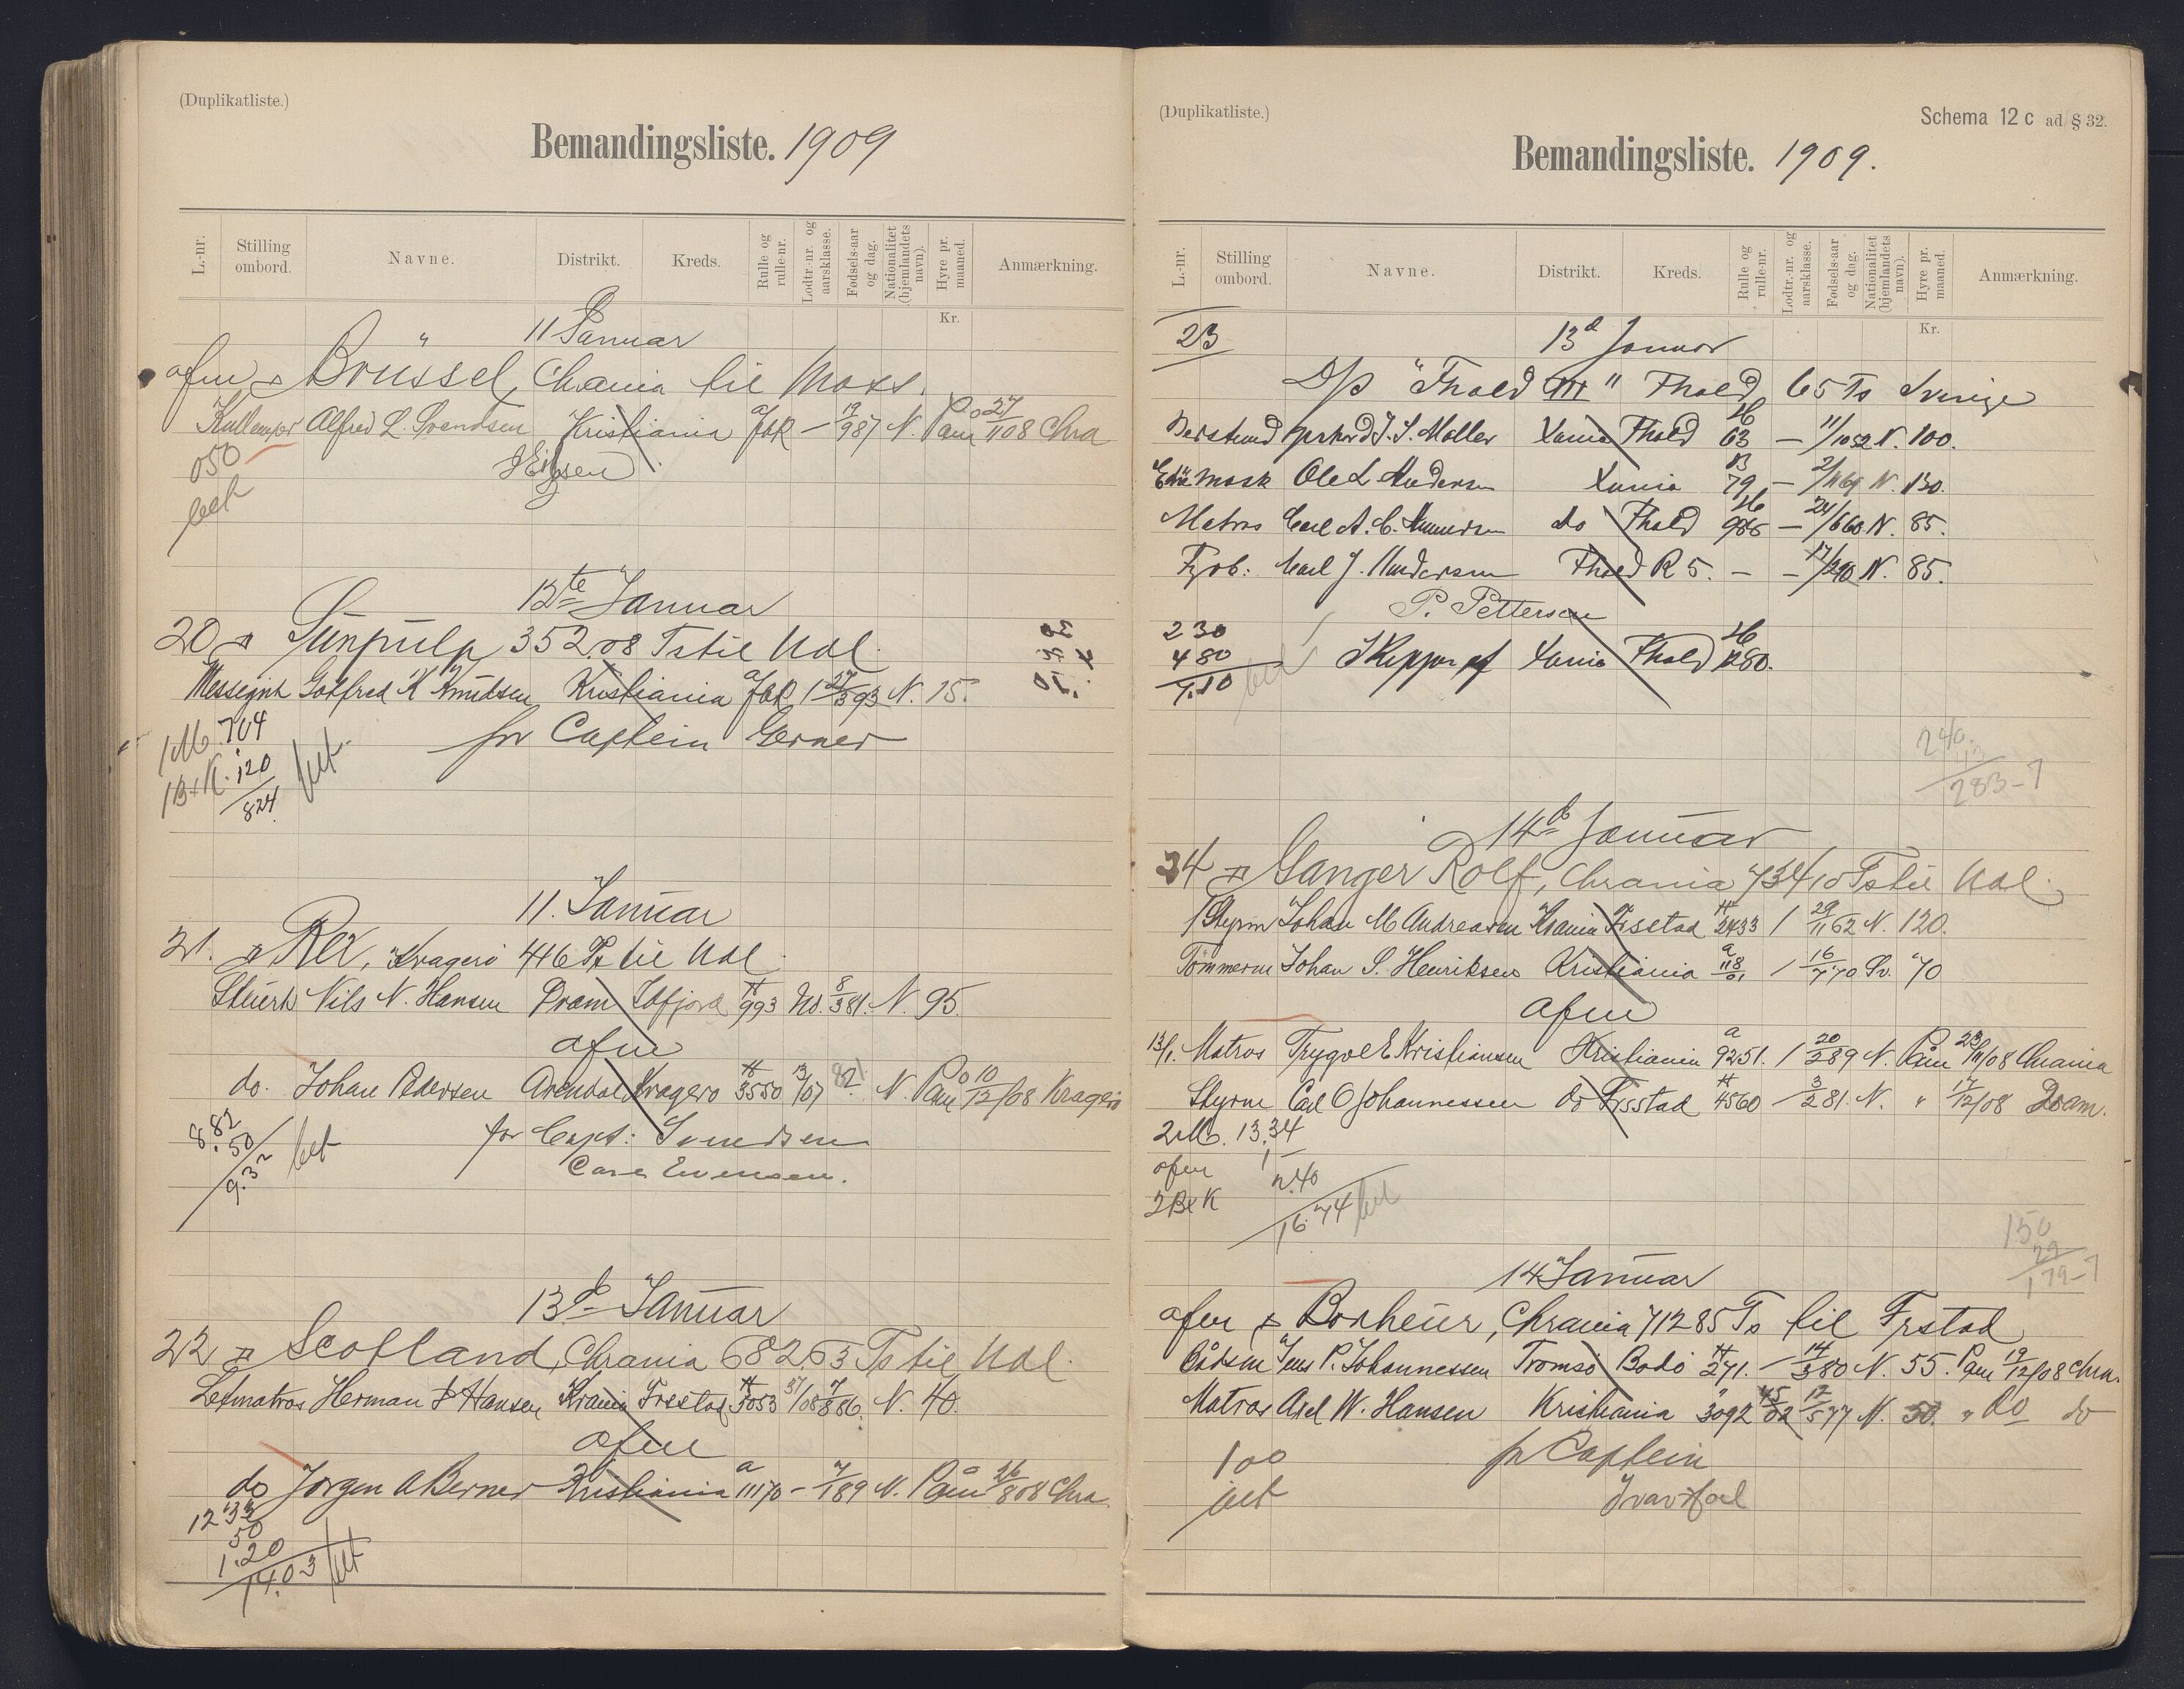 (Duplikatliste.)
Bemandingsliste. 1909
L.-nr.
Stilling ombord.
Navne.
Distrikt.
Kreds.
Rulle og rulle-nr.
Lodtr.-nr. og aarsklasse.
Fødsels-aar og dag.
Nationalitet (hjemlandets navn).
Hyre pr. maaned.
Anmærkning.
Kr.
11 Januar
afm Brüssel, Chrania til Moss.
Kullemper Alfred L. Svendsen Kristiania N. 08 Chra
050
bet
12te Januar
20 352 08 Ts til Udl.
Messegut Gotfred K Knudsen Kristiania 1 27/3 93 N. 15.
for Captein Gerner
1 M. 704
1 B+K. 120
824 bet
11. Januar
21. Rex, Kragerö 416 Ts til Udl
Stuert Nils N. Hansen Dram 993 Ud. 8/3 81. N. 95.
afm
do. Johan Pedersen Arendal Kragerö 3550 13/07 82. N. Paam 10/12/08 Kragerö
8.82
.50
9.32 bet
for Capt: Svendsen
Carl Evensen.
13de Januar
22 Scotland, Chrania 682.63 Ts til Udl.
Letmatros Herman Hansen Krania Frstad 3053 37/08 7/8 86. N. 40.
afm
do Jörgen A Berner Kristiania 11170 - 7/1 89 N. Paam 26/8 08 Chra.
12 33
50
1.20
14.03 bet
(Duplikatliste.)
Schema 12 c ad. § 32.
Bemandingsliste. 1909.
L.-nr.
Stilling ombord.
Navne.
Distrikt.
Kreds.
Rulle og rulle-nr.
Lodtr.-nr. og aarsklasse.
Fødsels-aar og dag.
Nationalitet (hjemlandets navn).
Hyre pr. maaned.
Anmærkning.
Kr.
23
13d Januar
D/p "Fhald III" Fhald 65 Ts Sverige
J. S. Möller Xania Fhald 63 - 11/10 52 N. 100.
Mask Ole L Andersen Xania 79 - N. 130.
Matros Carl A. C. do Fhald 986 - 24/6 60. N. 85.
Fyrb: Carl J. Andersen Fhald R 5. - - 17/2 90 N. 85.
P. Pettersen
230
480
7.10 bet
Skipper pf Xania Fhald 1280.
240.
43
283-7
14de Januar
24 Ganger Rolf, Chrania 734 10 Ts til Udl.
1 Styrm Johan M Andreasen Krania Frsstad 2433 / 29/11 62 N. 120.
Tömmerm Johan S. Henriksen Kristiania 118/01 / 16/7 70 Sv. 70
afm
13/1. Matros Trygve E Kristiansen Kristiania a 9251. / 20/2 89 N. Paam 23/11/08 Chrania
Styrm Carl O Johannessen do Frsstad 4560 - 3/2 81. N. " 17/12/08 Dram.
2 M. 13.34
afm 1
2 B & K 2.40
16.74 bet
150
29
179-7
14 Januar
afm Bonheur, Chrania 712 85 Ts til Frstad
Baadsm Jens P. Johannessen Tromsö Bodö 271. - 14/3 80 N. 55. Paam 19/12/08 Chra.
Matros Axel W. Hansen Kristiania 3092 45/02 12/5 77 N. 50. " do do
100
bet
for Captein
Ivar Hoel